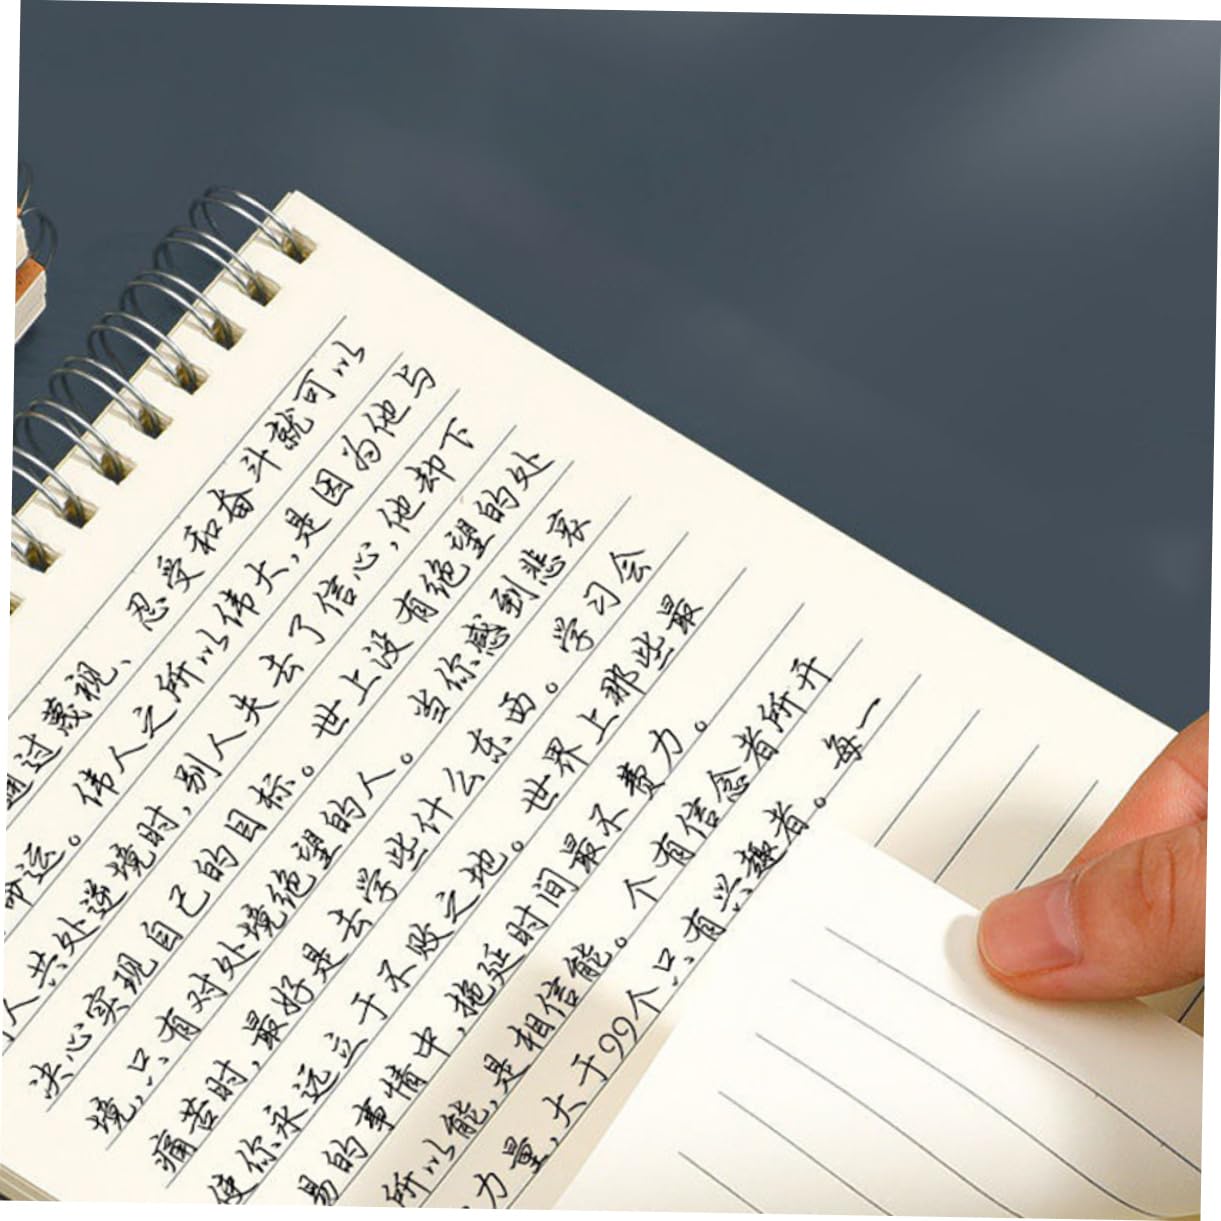 通过蔑视、忍受和奋斗就可以
命运。伟人之所以伟大,是因为他与
人共处逆境时,别人失去了信心,他却下
决心实现自己的目标。世上没有绝望的处
境,只有对处境绝望的人。当你感到悲哀
痛苦时,最好是去学些什么东西。学习会
使你永远立于不败之地。世界上那些最
易的事情中,拖延时间最不费力。
所以能,是相信能。个有信念者所开
力量,大于99个只有兴趣者。每一